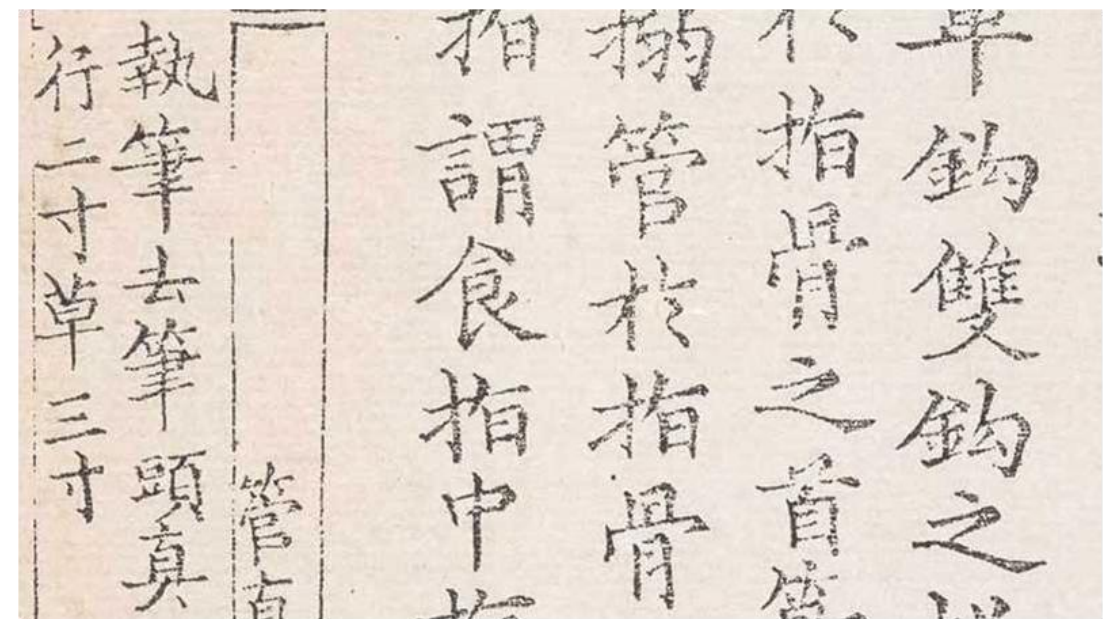 單鈎雙鈎之
於指骨之首管
搦管於指骨
指謂食指中指
管真
執筆去筆頭真
行二寸草三寸